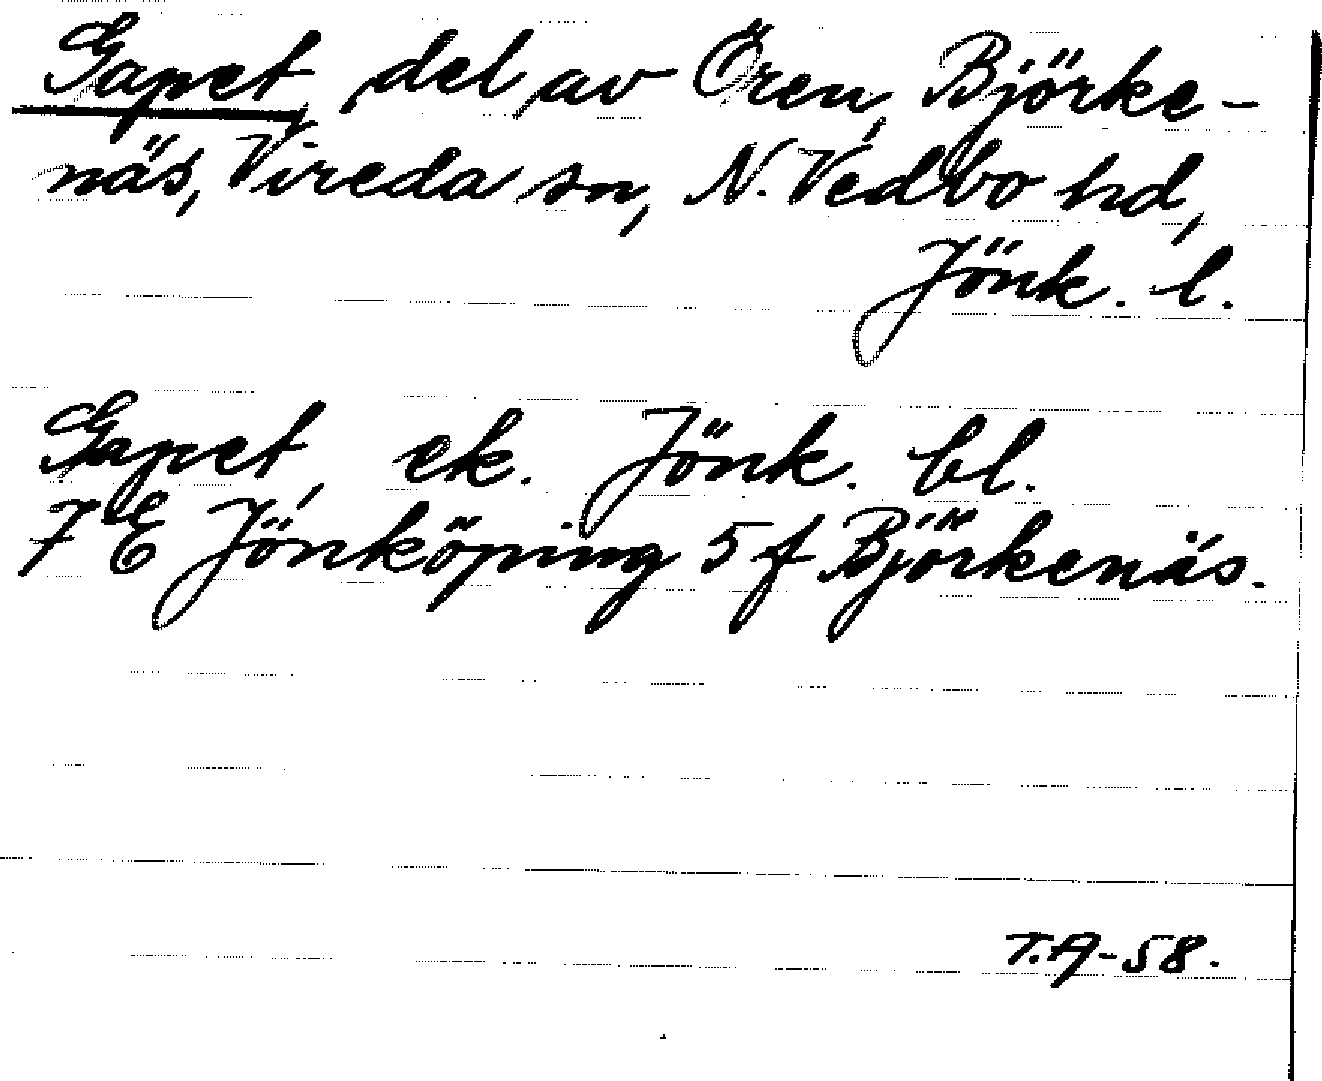 Gapet, del av Ören, Björke-
näs, Vireda sn, N. Vedbo hd,
Jönk. l.
Gapet, ek. Jönk. bl.
7 E Jönköping 5 f Björkenäs.
T.A-58.